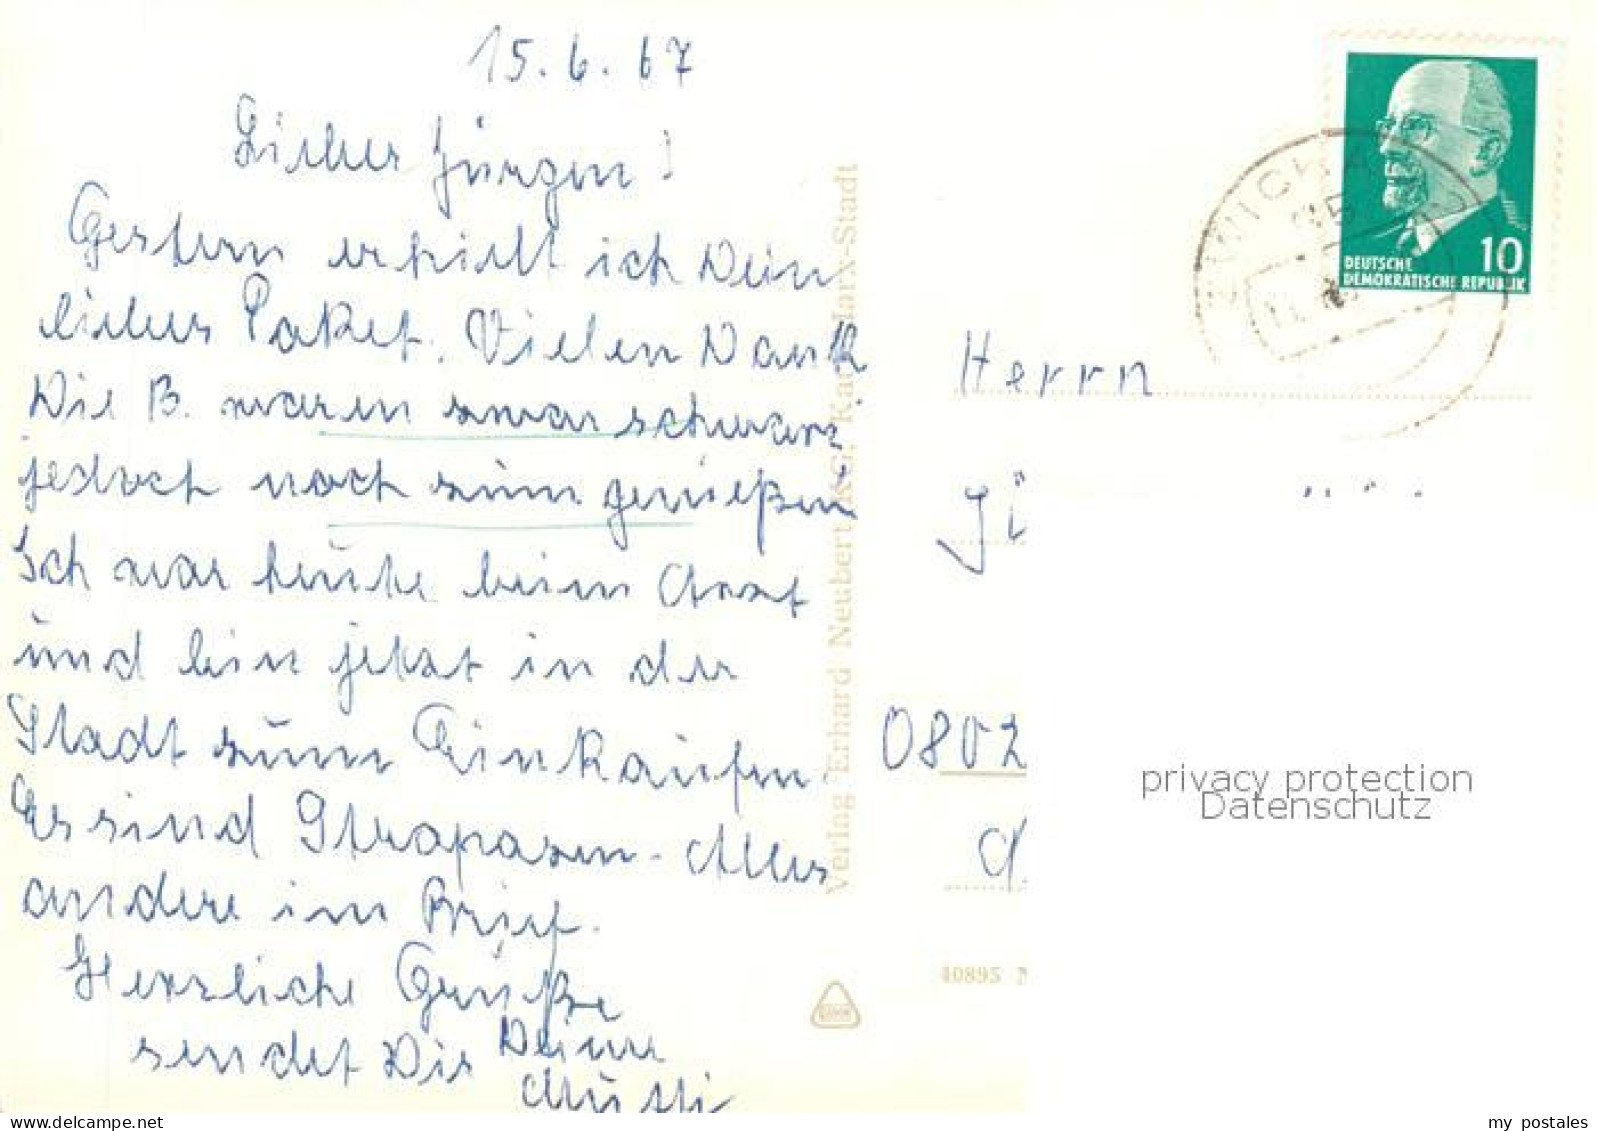 15.6.67
Lieber Jürgen!
Gestern erhielt ich Dein
liebes Paket. Vielen Dank
Die B. waren zwar schwarz
jedoch noch zum genießen
Ich war heute beim Arzt
und bin jetzt in der
Stadt zum Einkaufen
Es sind Strapazen. Alles
andere im Brief.
Herzliche Grüße
sendet Dir Deine
Mutti
Verlag Erhard Neubert KG, Karl-Marx-Stadt
ZWICKAU
95
10
DEUTSCHE
DEMOKRATISCHE REPUBLIK
Herrn
0802
40895
privacy protection
Datenschutz
my postales